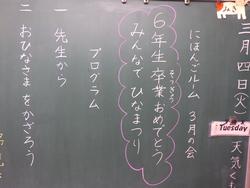 三月四日(火)
天気く
Tuesday
にほんごルーム 3月の会
6年生卒業おめでとう
そつぎょう
みんなで ひなまつり
プログラム
一 先生から
二 おひなさまをかざろう